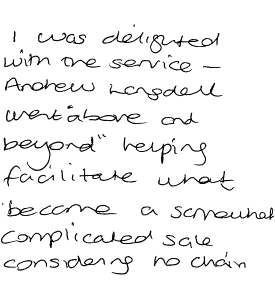 I was delighted
with the service –
Andrew Langdell
went above and
beyond" helping
facilitate what
become a somewhat
complicated sale
considering no chain